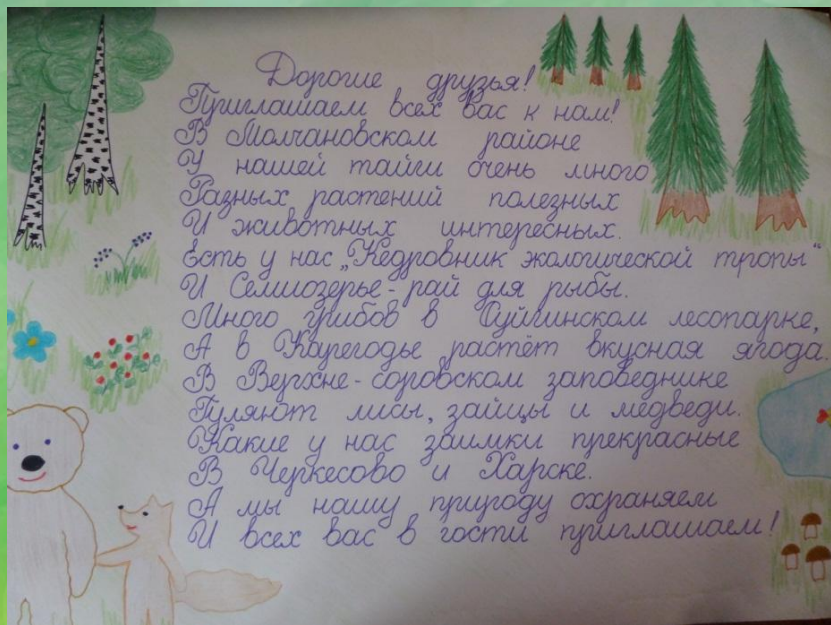 Дорогие друзья!
Приглашаем всех вас к нам!
В Молчановском районе
У нашей тайги очень много
Разных растений полезных
И животных интересных.
Есть у нас „Кедровник экологической тропы“
И Семиозерье - рай для рыбы.
Много грибов в Суйгинском лесопарке,
А в Карегодье растёт вкусная ягода.
В Верхне-соровском заповеднике
Гуляют лисы, зайцы и медведи.
Какие у нас заимки прекрасные
В Черкесово и Харске.
А мы нашу природу охраняем
И всех вас в гости приглашаем!